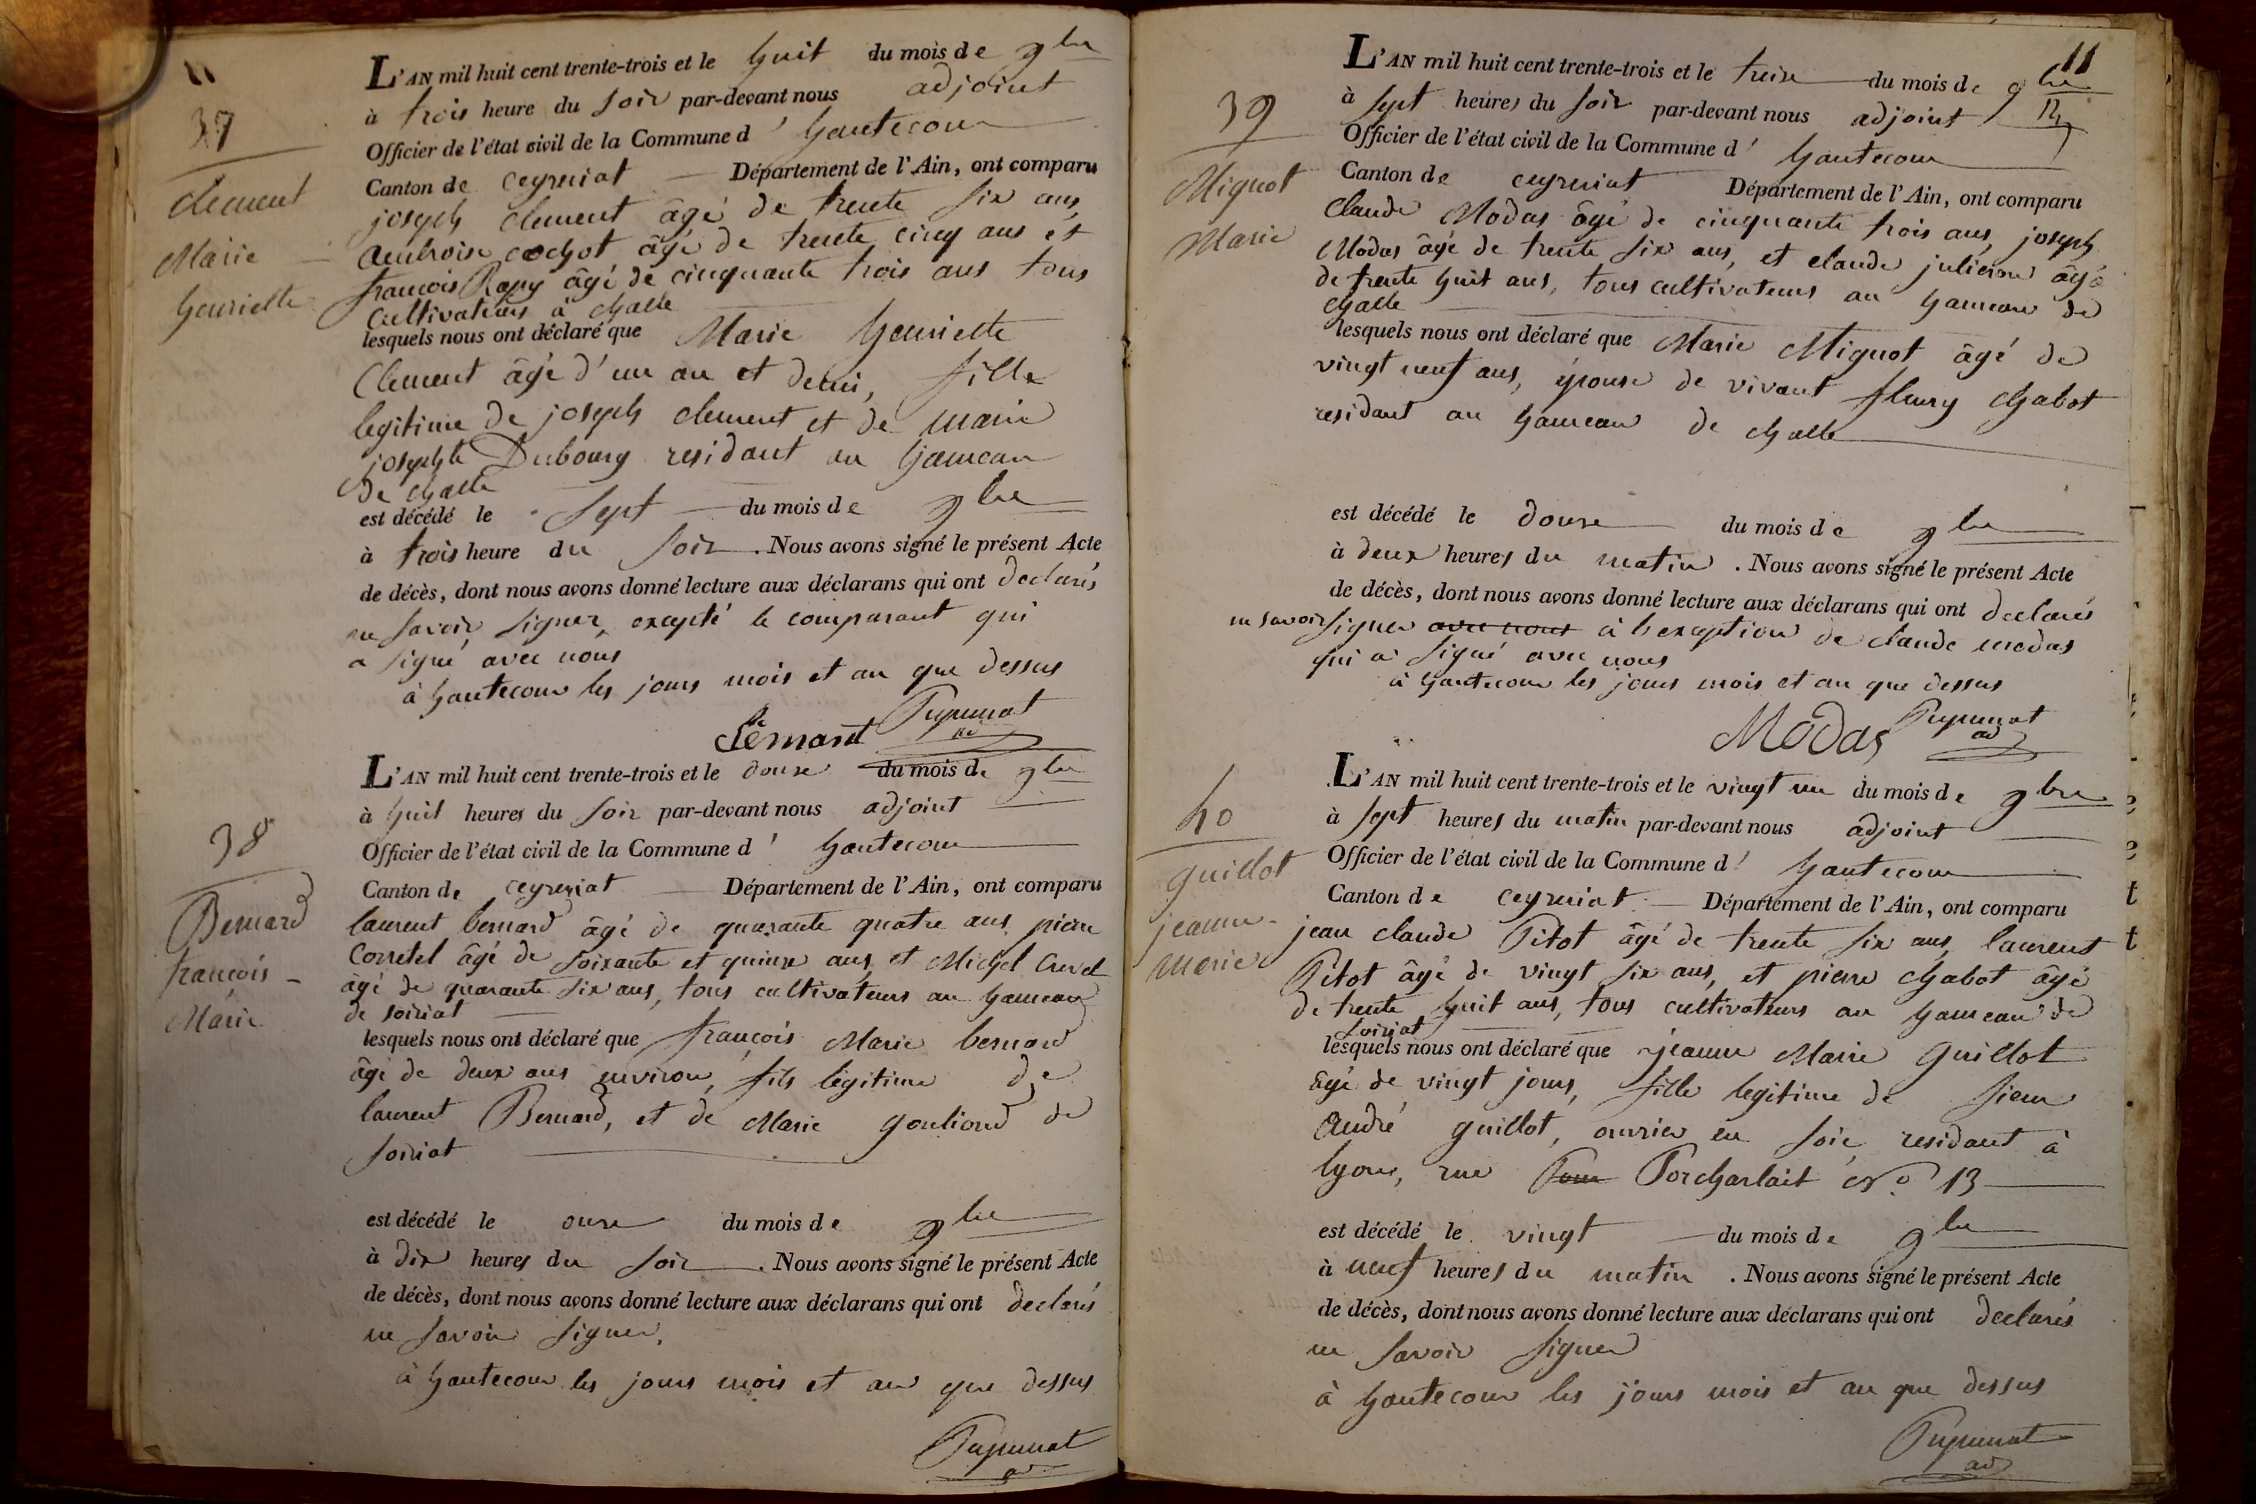 11
37
Clement
Marie
henriette
L'AN mil huit cent trente-trois et le huit du mois de 9bre
à trois heure du soir par-devant nous adjoint
Officier de l'état civil de la Commune d'hautecour
Canton de ceyzeriat Département de l'Ain, ont comparu
joseph clement âgé de trente six ans,
ambroise cochot âgé de trente cinq ans et
françois Rapy âgé de cinquante trois ans tous
cultivateurs à challe
lesquels nous ont déclaré que Marie henriette
Clement âgé d'un an et demi, fille
legitime de joseph clement et de marie
josephte Dubourg residant au hameau
de challe
est décédé le sept du mois de 9bre
à trois heure du soir. Nous avons signé le présent Acte
de décès, dont nous avons donné lecture aux déclarans qui ont declarés
ne savoir signer, excepté le comparant qui
a signé avec nous
à hautecour les jours mois et an que dessus
Clémant Pupunat
ad
38
Bernard
françois
Marie
L'AN mil huit cent trente-trois et le douze du mois de 9bre
à huit heures du soir par-devant nous adjoint
Officier de l'état civil de la Commune d'hautecour
Canton de ceyzeriat Département de l'Ain, ont comparu
laurent bernard âgé de quarante quatre ans pierre
Corretel âgé de soixante et quinze ans et Michel Cuvet
âgé de quarante six ans, tous cultivateurs au hameau
de soiriat
lesquels nous ont déclaré que françois Marie bernard
âgé de deux ans environ, fils légitime de
laurent Bernard, et de Marie goulioud de
soiriat
est décédé le onze du mois de 9bre
à dix heures du soir. Nous avons signé le présent Acte
de décès, dont nous avons donné lecture aux déclarans qui ont declarés
ne savoir signer,
à hautecour les jours mois et an que dessus
Pupunat
ad
11
39
Mignot
Marie
L'AN mil huit cent trente-trois et le treize du mois de 9bre
à sept heures du soir par-devant nous adjoint
Officier de l'état civil de la Commune d'hautecour
Canton de ceyzeriat Département de l'Ain, ont comparu
Claude Modas âgé de cinquante trois ans, joseph
Modas âgé de trente six ans, et claude julieron âgé
de trente huit ans, tous cultivateurs au hameau de
challe
lesquels nous ont déclaré que Marie Mignot âgé de
vingt neuf ans, épouse de vivant fleury Chabot
residant au hameau de challe
est décédé le douze du mois de 9bre
à deux heures du matin. Nous avons signé le présent Acte
de décès, dont nous avons donné lecture aux déclarans qui ont declarés
ne savoir signer avec nous à l'exception de claude modas
qui a signé avec nous
à hautecour les jours mois et an que dessus
Modas Pupunat
ad
40
guillot
jeanne
marie
L'AN mil huit cent trente-trois et le vingt un du mois de 9bre
à sept heures du matin par-devant nous adjoint
Officier de l'état civil de la Commune d'hautecour
Canton de ceyzeriat Département de l'Ain, ont comparu
jean claude Pitot âgé de trente six ans, laurent
Pitot âgé de vingt six ans, et pierre chabot âgé
de trente huit ans, tous cultivateurs au hameau de
soiriat
lesquels nous ont déclaré que jeanne Marie guillot
âgé de vingt jours, fille legitime de sieur
André guillot, ouvrier en soie residant à
lyons, rue Pour Porcharlait No 13
est décédé le vingt du mois de 9bre
à neuf heures du matin. Nous avons signé le présent Acte
de décès, dont nous avons donné lecture aux déclarans qui ont declarés
ne savoir signer
à hautecour les jours mois et an que dessus
Pupunat
ad